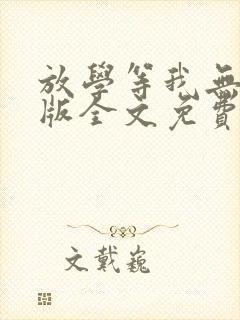 放學等我無
版全文免費
文戴巍